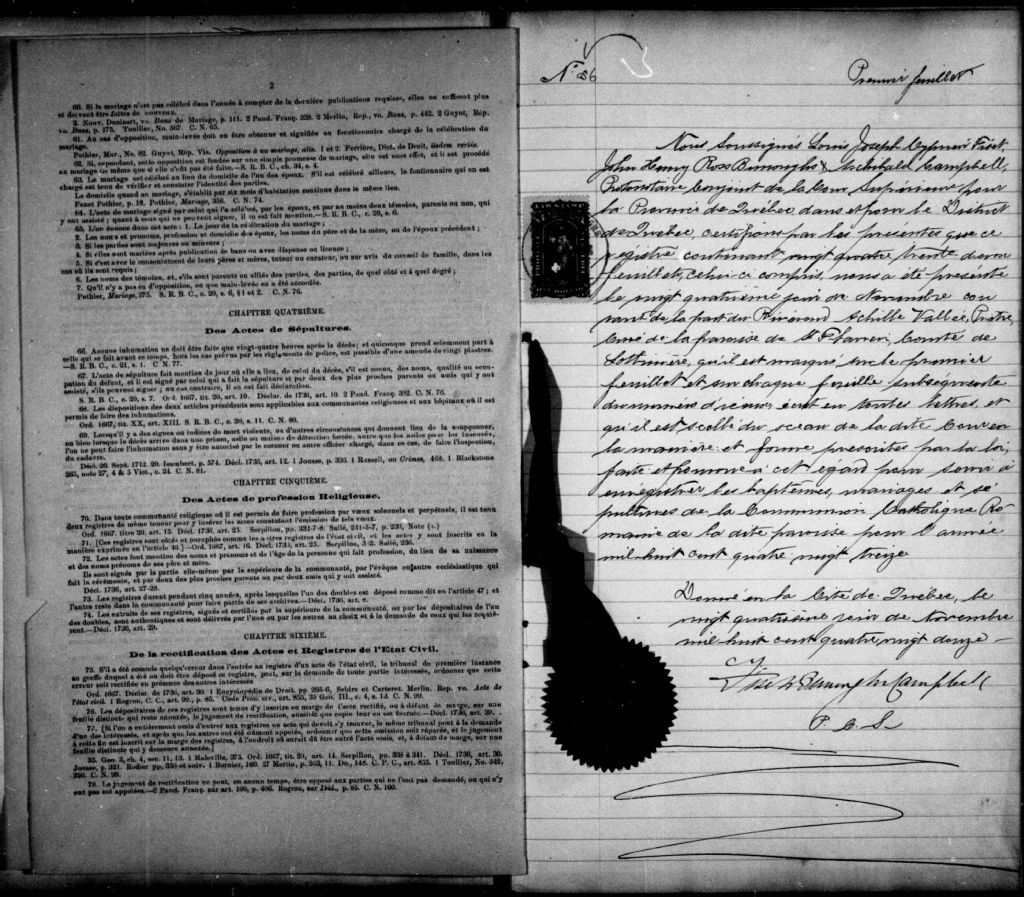 2
60. Si le mariage n'est pas célébré dans l'année à compter de la dernière publications requises, elles ne suffisent plus
et doivent être faites de nouveau.
3. Nouv. Denizart, vo. Bans de Mariage, p. 111. 2 Pand. Franç. 328. 2 Merlin, Rep, vo. Bans, p. 442. 2 Guyot, Rép.
vo. Bans, p. 173. Toullier, No. 567. C. N. 65.
61. Au cas d'opposition, main-levée doit en être obtenue et signifiée au fonctionnaire chargé de la célébration du
mariage.
Pothier, Mar., No. 82. Guyot, Rép. Vis. Opposition à un mariage, alin. 1 et 2. Ferrière, Dict. de Droit, iisdem verbis.
62. Si, cependant, cette opposition est fondée sur une simple promesse de mariage, elle est sans effet, et il est procédé
au mariage de même que si elle n'eût pas été faite.—S. R. B. C., ch. 34, s. 4.
63. Le mariage est célébré au lieu du domicile de l'un des époux. S'il est célébré ailleurs, le fontionnaire qui en est
chargé est tenu de vérifier et constater l'identité des parties.
Le domicile quant au mariage, s'établit par six mois d'habitation continue dans le même lieu.
Fenet Pothier p. 18. Pothier, Mariage, 356. C. N. 74.
64. L'acte de mariage signé par celui qui l'a célébré, par les époux, et par au moins deux témoins, parents ou non, qui
y ont assisté; quant à ceux qui ne peuvent signer, il en est fait mention.—S. R. B. C., c. 20, s. 6.
65. L'on énonce dans cet acte: 1. Le jour de la célébration du mariage;
2. Les noms et prénoms, profession et domicile des époux, les noms du père et de la mère, ou de l'époux précédent;
3. Si les parties sont majeures ou mineurs;
4. Si elles sont mariées après publication de bans ou avec dispense ou licence;
5. Si c'est avec le consentement de leurs pères et mères, tuteur ou curateur, ou sur avis du conseil de famille, dans les
cas où ils sont requis;
6. Les noms des témoins, et, s'ils sont parents ou alliés des parties, des parties, de quel côté et à quel degré;
7. Qu'il n'y a pas eu d'opposition, ou que main-levée en a été accordée.
Pothier, Mariage, 375. S. R. B. C., c. 20, s. 6, § 1 et 2. C. N. 76.
CHAPITRE QUATRIÈME.
Des Actes de Sépultures.
66. Aucune inhumation ne doit être faite que vingt-quatre heures après le décès; et quiconque prend sciemment part à
celle qui se fait avant ce temps, hors les cas prévus par les règlements de police, est passible d'une amende de vingt piastres.
—S. R. B. C., c. 21, s. 1. C N. 77.
67. L'acte de sépulture fait mention du jour où elle a lieu, de celui du décès, s'il est connu, des noms, qualité ou occu-
pation du défunt, et il est signé par celui qui a fait la sépulture et par deux des plus proches parents ou amis qui y ont
assisté, s'ils peuvent signer; au cas contraire, il en est fait déclaration.
S. R. B. C., c. 20, s. 7. Ord. 1667, tit. 20, art. 10. Déclar. de 1736, art. 10. 2 Pand. Franç. 382. C. N. 76.
68. Les dispositions des deux articles précédents sont applicables aux communautes religieuses et aux hôpitaux où il est
permis de faire des inhumations.
Ord. 1667, tit. XX, art. XIII. S. R. B. C., c. 20, s. 11. C. N. 80.
69. Lorsqu'il y a des signes ou indices de mort violente, ou d'autres circonstances qui donnent lieu de la soupçonner,
ou bien lorsque le décès arrive dans une prison, asile ou maison de détention forcée, autre que les asiles pour les insensés,
l'on ne peut faire l'inhumation sans y être autorisé par le coroner ou autre officier chargé, dans ce cas, de faire l'inspection,
du cadavre.
Décl. 20. Sept. 1712. 20. Isambert, p. 574. Décl. 1736, art. 12. 1 Jousse, p. 336. 1 Russell, on Crimes, 468. 1 Blackstone
265, note 27, 4 & 5 Vict., c. 24. C. N. 81.
CHAPITRE CINQUIÈME.
Des Actes de profession Religieuse.
70. Dans toute communauté religieuse où il est permis de faire profession par vœux solennels et perpétuels, il est tenu
deux registres de même teneur pour y insérer les actes constatant l'émission de tels vœux.
Ord. 1667. titre 20, art. 15. Décl. 1736, art. 25. Serpillon, pp. 332-7-8. Sallé, 241-5-7, p. 236, Note (c.)
71. [Ces registres sont cotés et paraphés comme les autres registres de l'état civil, et les actes y sont inscrits en la
manière exprimée en l'article 46.]—Ord. 1667, art. 16. Décl. 1736, art. 25. Serpillon, 3 2. Sallé, 236.
72. Les actes font mention des noms et prénoms et de l'âge de la personne qui fait profession, du lieu de sa naissance
et des noms prénoms de ses père et mère.
Ils sont signés par la partie elle-même par la supérieure de la communauté, par l'évêque ou autre ecclésiastique qui
fait la cérémonie, et par deux des plus proches parents ou par deux amis qui y ont assisté.
Décl. 1736, art. 27-28.
73. Les registres durent pendant cinq années, après lesquelles l'un des doubles est déposé comme dit en l'article 47; et
l'autre reste dans la communauté pour faire partie de ses archives.—Décl. 1736, art. 8.
74. Les extraits de ses registres, signés et certifiés par la supérieure de la communauté, ou par les dépositaires de l'un
des doubles, sont authentiques et sont délivrés par l'une ou par les autres au choix et à la demande de ceux qui les requiè-
rent.—Décl. 1736, art. 29.
CHAPITRE SIXIÈME.
De la rectification des Actes et Registres de l'Etat Civil.
75. S'il a été commis quelqu'erreur dans l'entrée au registre d'un acte de l'état civil, le tribunal de première instance
au greffe duquel a été ou doit être déposé ce registre, peut, sur la demande de toute partie intéressée, ordonner que cette
erreur soit rectifiée en présence des autres intéressés
Ord. 1667. Déclar. de 1736, art. 30. 1 Encyclopédie de Droit. pp 205-6, Sebire et Carteret. Merlin. Rep. vo. Acte de
l'état civil. 1 Rogron, C. C., art. 99., p. 85. Code Proc. civ., art. 855, 35 Geo. III., c. 4, s. 14. C. N. 99.
76. Les dépositaires de ces registres sont tenus d'y inscrire en marge de l'acte rectifié, ou à défaut de marge, sur une
feuille distincte qui reste annexée, le jugement de rectification, aussitôt que copie leur en est fournie.—Décl. 1736, art. 30.
77. [Si l'on a entièrement omis d'entrer aux registres un acte qui devait s'y trouver, le même tribunal peut à la demande
d'un des intéressés, et après que les autres ont été dûment appelés, ordonner que cette omission soit réparée, et le jugement
à cette fin est inscrit sur la marge des registres, à l'endroit où aurait dû être entré l'acte omis, et, à défaut de marge, sur une
feuille distincte qui y demeure annexée.]
35. Geo. 3, ch. 4, sec. 11, 13. 1 Maleville, 373. Ord. 1667, tit. 20, art. 14. Serpillon, pp. 338 à 341. Décl. 1736, art. 30.
Jousse, p. 321. Rodier pp, 350 et suiv. 1 Bornier, 160. 27 Merlin, p. 263, 11. Do., 148. C. P. C., art. 855. 1 Toullier, No. 342,
350. C. N. 99.
78. Le jugement de rectification ne peut, en aucun temps, être opposé aux parties qui ne l'ont pas demandé, ou qui n'y
ont pas été appelées.—2 Pand. Franç. sur art. 100, p. 406. Rogron, sur Ibid., p. 85. C. N. 100.
N° 26
Premier feuillet
Nous Soussignés Louis Joseph Cyprien Fiset
John Henry Ross Burroughs & Archibald Campbell,
Protonotaire Conjoint de la Cour Supérieure pour
la Province de Québec, dans et pour le District
de Québec, certifions par les présentes que ce
registre contenant vingt quatre
feuillets, celui ci compris, nous a été présenté
le vingt quatrième jour de Novembre cou
rant de la part du Révérend Achille Vallée, Prêtre,
Curé de la paroisse de St Flavien, Comté de
Lotbinière, qu'il est marqué sur le premier
feuillet et sur chaque feuille subséquente
du numéro d'icelui, écrit en toutes lettres et
qu'il est scellé du sceau de la dite Cour en
la manière et forme prescrites par la loi,
faite et pourvue à cet égard pour servir à
enregistrer les baptêmes, mariages et sé
pultures de la Communion Catholique Ro
maine de la dite paroisse pour l'année
mil huit cent quatre vingt treize
Donné en la Cité de Québec, le
vingt quatrième jour de Novembre
mil huit cent quatre vingt douze —
Fiset Burroughs Campbell
P. C. S.